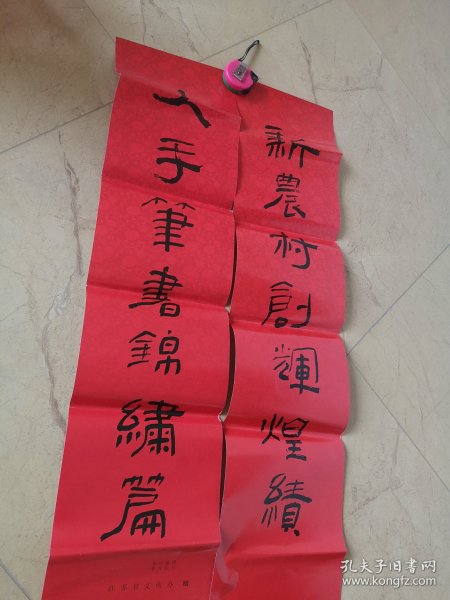 新農村創輝煌績
大手筆書錦繡篇
江苏省文明办 赠
孔夫子旧书网
www.kongfz.com